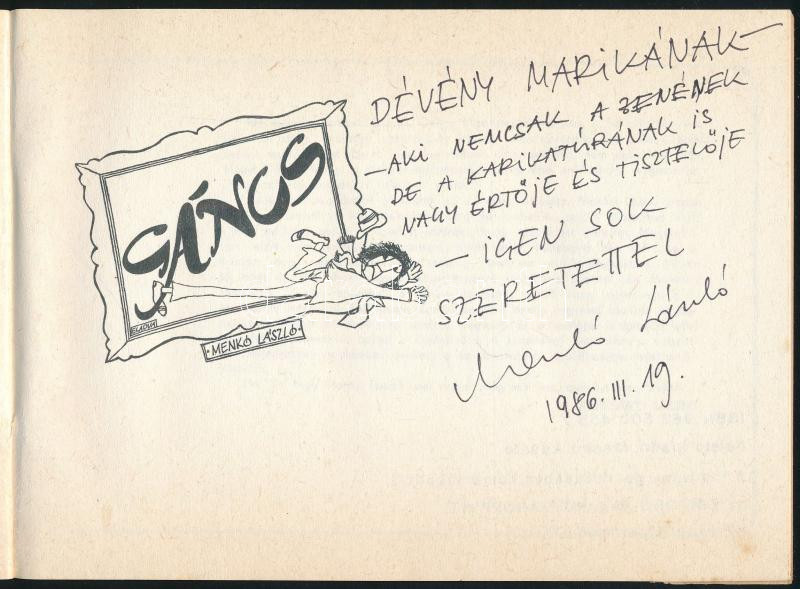 DÉVÉNY MARIKÁNAK—
—AKI NEMCSAK A ZENÉNEK
DE A KARIKATÚRÁNAK IS
NAGY ÉRTŐJE ÉS TISZTELŐJE
— IGEN SOK
SZERETETTEL
Menkó László
1986. III. 19.
GÁNCS
ELADVA
·MENKÓ LÁSZLÓ·